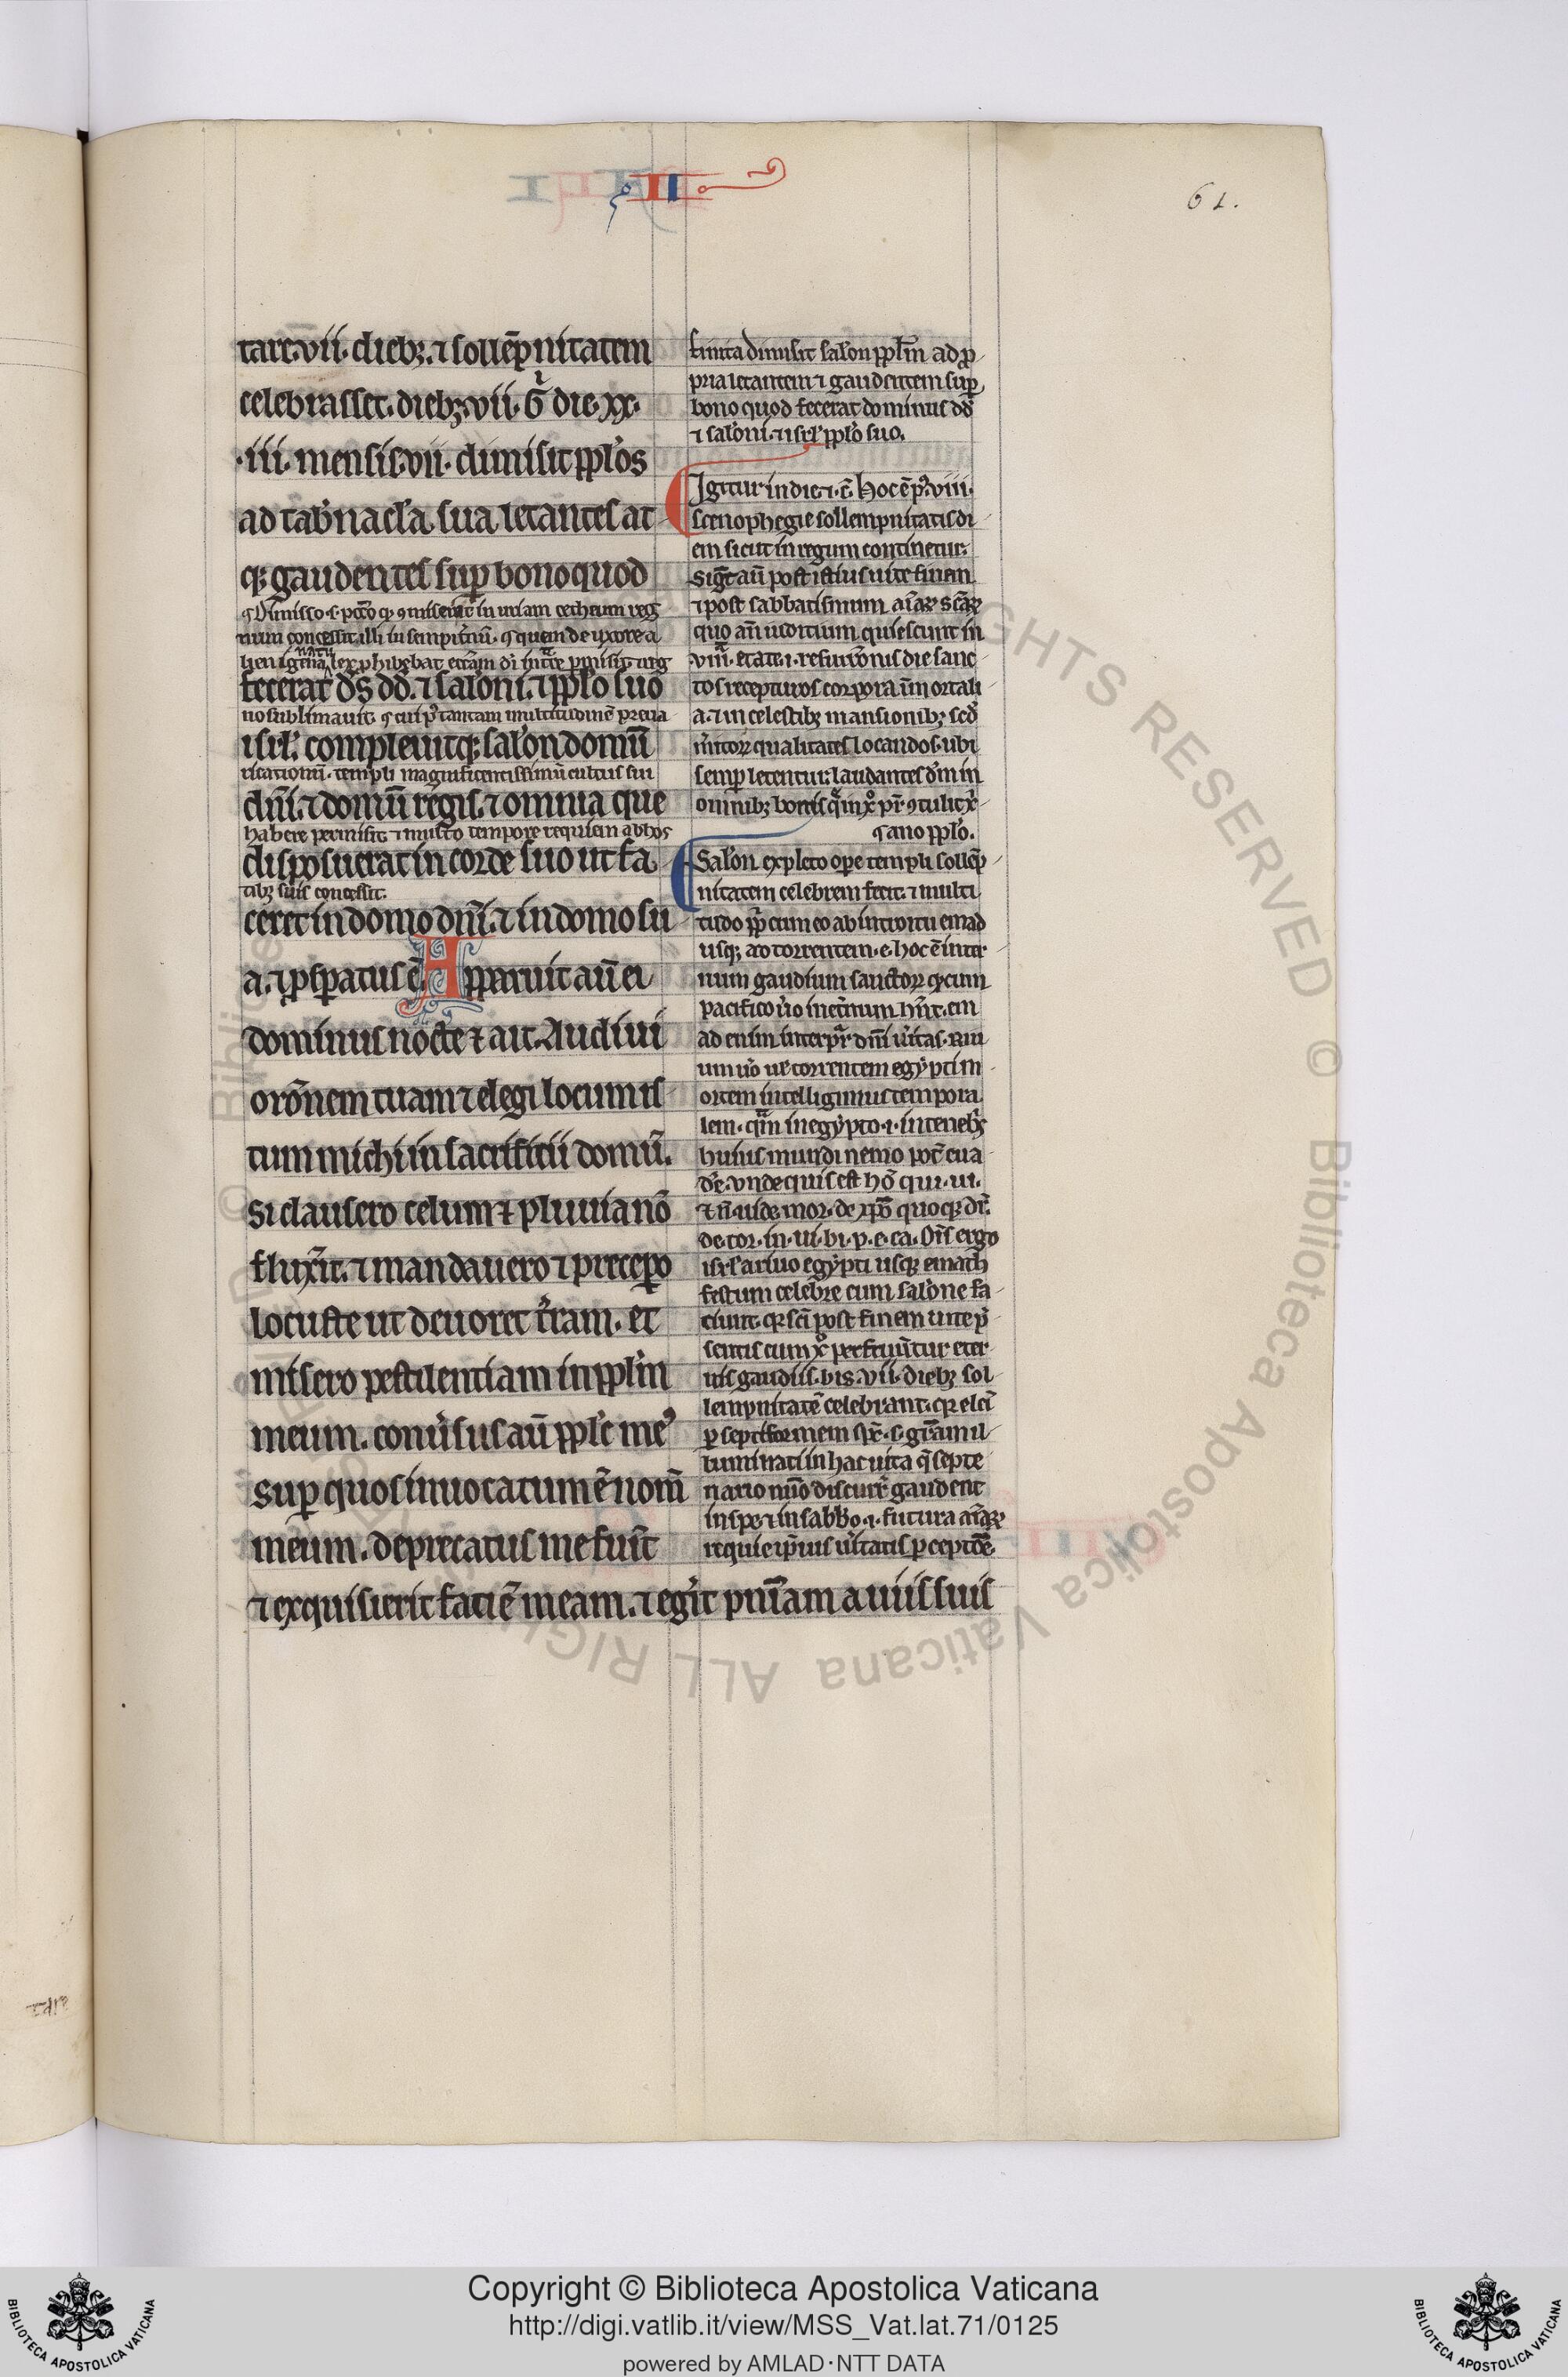 II
61.
tare .vii. dieb;. ⁊ sollēpnitatem
celebrasset. dieb; .vii. Gͥ die .xx.
.iii. mensis .vii. dimisit ppl'os
ad tab'nac'la sua letantes at
q; gaudentes sup̱ bono quod
num concessit illi in sempit'nū. ꝯ quem de uxore a
natu
fecerat d̄s dd̄. ⁊ salom̄oni. ⁊ ppl'o suo
uo sublimauit. ꝯ cui p̄ tantam multitudinē p̄eua
isrl'. compleuitq; salon domū
ricationū. templi magnificentissimū cultus sui
dn̄i. ⁊ domū regis. ⁊ omnia que
habere permisit ⁊ multo tempore requiem ab hos
disposuerat in corde suo ut fa
tib; suis concessit.
ceret in domo dn̄i. ⁊ in domo su
a. ⁊ p̱sp̱atus ē. Apparuit aū ei
dominus nocte ⁊ ait. Audiui
orōnem tuam ⁊ elegi locum is
tum michi in sacrificii domū.
Si clausero celum ⁊ pluuia nō
fluxīt. ⁊ mandauero ⁊ precep̱o
locuste ut deuoret t'ram. et
misero pestilentiam in ppl'm
meum. conu'sus aū ppl's me⁹
sup̱ quos inuocatum ē nom̄
meum. deprecatus me fuīt
⁊ exquisierit faciē meam. ⁊ eg'it pnīam a uiis suis
finita dimisit salon ppl'm ad p̱
pria letantem ⁊ gaudentem sup̱
bono quod fecerat dominus dd̄
⁊ sal'oni. ⁊ isrl' ppl'o suo.
Igitur in die ⁊.c̄. Hoc ē p⁹ .viii.
scenophegie sollempnitatis di
em sicut in regum continetur.
Sigt̄ aū post istius uite finem
⁊ post sabbatismum aīaꝝ scāꝝ
quo an̄ iudicium quiescunt in
.viiī. etate .i. resurr̄onis die sanc
tos recepturos corpora īmortali
a. ⁊ in celestib; mansionib; sc'd
m'itoꝝ qualitates locandos. ubi
semp̱ letentur: laudantes d'm in
omnibus bonis q̄ in xp̄o pr̄ ꝯtulit xp̄i
ꝯano ppl'o.
Sal'on expleto ope templi sollēp
nitatem celebrem fecit. ⁊ multi
tudo ppl'i cum eo ab introitu emad
usq; ad torrentem .e. hoc ē inter
num gaudium sanctoꝝ q̱ cum
pacifico u'o inet'num h'nt. em
ad enim interpr̄ dn̄i u'itas. Riu
um u'o u'e torrentem egypti m
ortem intelligimus tempora
lem. qm̄ in egypto .i. in teneb's
huius mundi nemo pot̄ eua
d'e. Vnde quis est hō qui .ui.
⁊ n̄ uide. mor. de xp̄o quoq; dr̄.
de tor. in. ui. bi. p. e. ca. Om̄s ergo
isrl' a riuo egypti usq; emath
festum celebre cum sal'one fa
ciunt. q̱ sc̄i post finem uite p̄
sentis cum xp̄o perfruūtur eter
nis gaudiis. bis .vii. dieb; sol
lempnitatē celebrant. q̱ elc̄i
p̱ septiformem sp̄c. s. gr̄am il
luminati in hac uita q̄ septe
nario nūo discurr̄ gaudent
in spe ⁊ in sabb̄o .i. futura aīaꝝ
requie ip̄ius u'itatis p̱ceptōe.
Copyright © Biblioteca Apostolica Vaticana
http://digi.vatlib.it/view/MSS_Vat.lat.71/0125
powered by AMLAD·NTT DATA
BIBLIOTECA APOSTOLICA VATICANA
BIBLIOTECA APOSTOLICA VATICANA